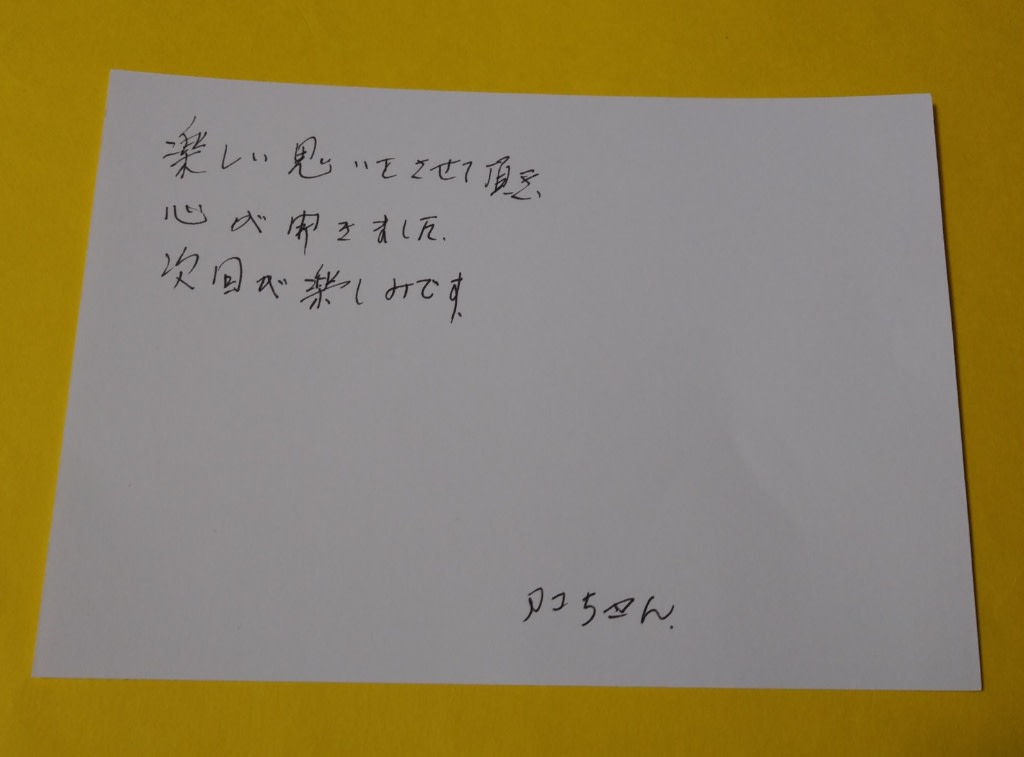 楽しい思いをさせて頂き
心が開きました.
次回が楽しみです
タコちゃん.